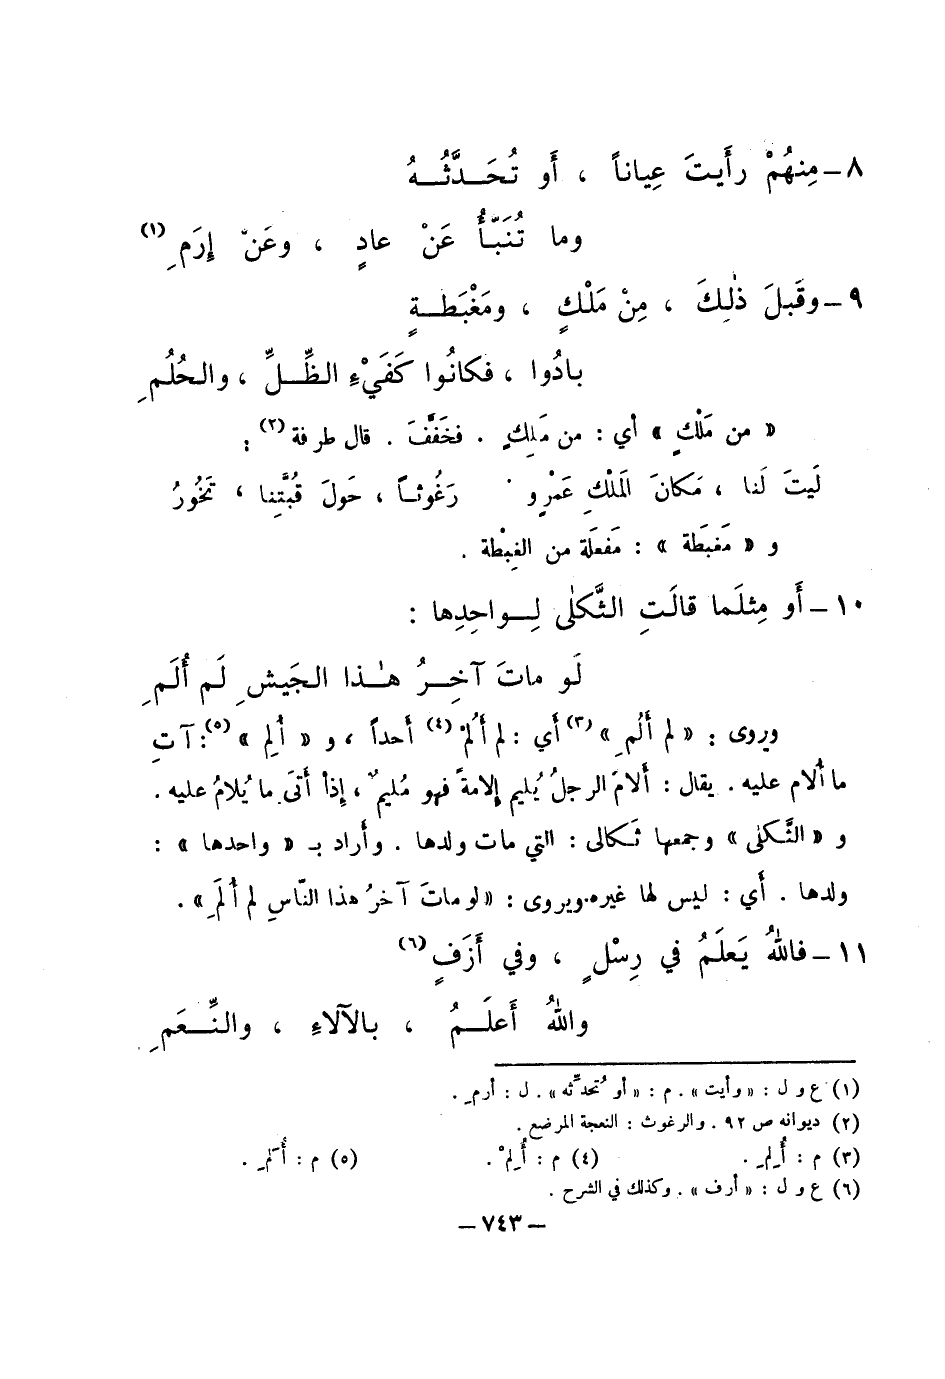 ٨ – مِنهُمْ رأَيتَ عِياناً ، أَو تُحَدَّثُهُ
وما تُنَبَّأُ عَنْ عادٍ ، وعَنْ إِرَمِ (١)
٩ – وقَبلَ ذٰلِكَ ، مِنْ مَلْكٍ ، ومَغْبَطةٍ
بادُوا ، فكانُوا كَفَيْءِ الظِّلِّ ، والحُلُمِ
« من مَلْكٍ » أي : من مَلِكٍ . فخَفَّفَ . قال طرفة (٢) :
لَيتَ لَنا ، مَكانَ المَلْكِ عَمْرٍو ٠ رَغُوثاً ، حَولَ قُبَّتِنا ، تَخُورُ
و « مَغبَطة » : مَفعَلة من الغِبْطة .
١٠ – أَو مِثلَما قالَتِ الثَّكلٰى لِواحِدِها :
لَو ماتَ آخِرُ هٰذا الجَيشِ لَم أُلَمِ
ويروى : « لم أَلُمِ » (٣) أي : لم أَلُمْ (٤) أَحداً ، و « أُلِمِ » (٥) : آتِ
ما أُلام عليه . يقال : أَلامَ الرجلُ يُليم إِلامةً فهو مُليمٌ ، إِذا أَتىَ ما يُلامُ عليه .
و « الثَّكلٰى » وجمعها ثَكالى : التي مات ولدها . وأَراد بـ « واحدها » :
ولدها . أَي : ليس لها غيره . ويروى : « لو ماتَ آخرُ هذا النّاسِ لم أُلَمِ » .
١١ – فاللهُ يَعلَمُ في رِسْلٍ ، وفي أَزَفٍ (٦)
واللهُ أَعلَمُ ، بالآلاءِ ، والنِّعَمِ
(١) ع و ل : « وأيت » . م : « أو تُحدّثه » . ل : أرمِ .
(٢) ديوانه ص ٩٢ . والرغوث : النعجة المرضع .
(٣) م : أُلِمِ . (٤) م : أُلِمْ . (٥) م : أُلَمِ .
(٦) ع و ل : « أرف » . وكذلك في الشرح .
– ٧٤٣ –